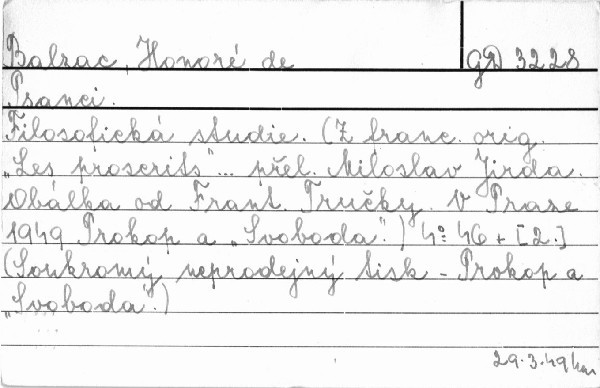 Balzac, Honoré de
GD 3228
Psanci.
Filosofická studie. (Z franc. orig.
„Les proscrits"... přel. Miloslav Jirda.
Obálka od Frant. Tručky. V Praze
1949 Prokop a „Svoboda".) 4° 46 + [2.]
(Soukromý neprodejný tisk - Prokop a
„Svoboda".)
29.3.49